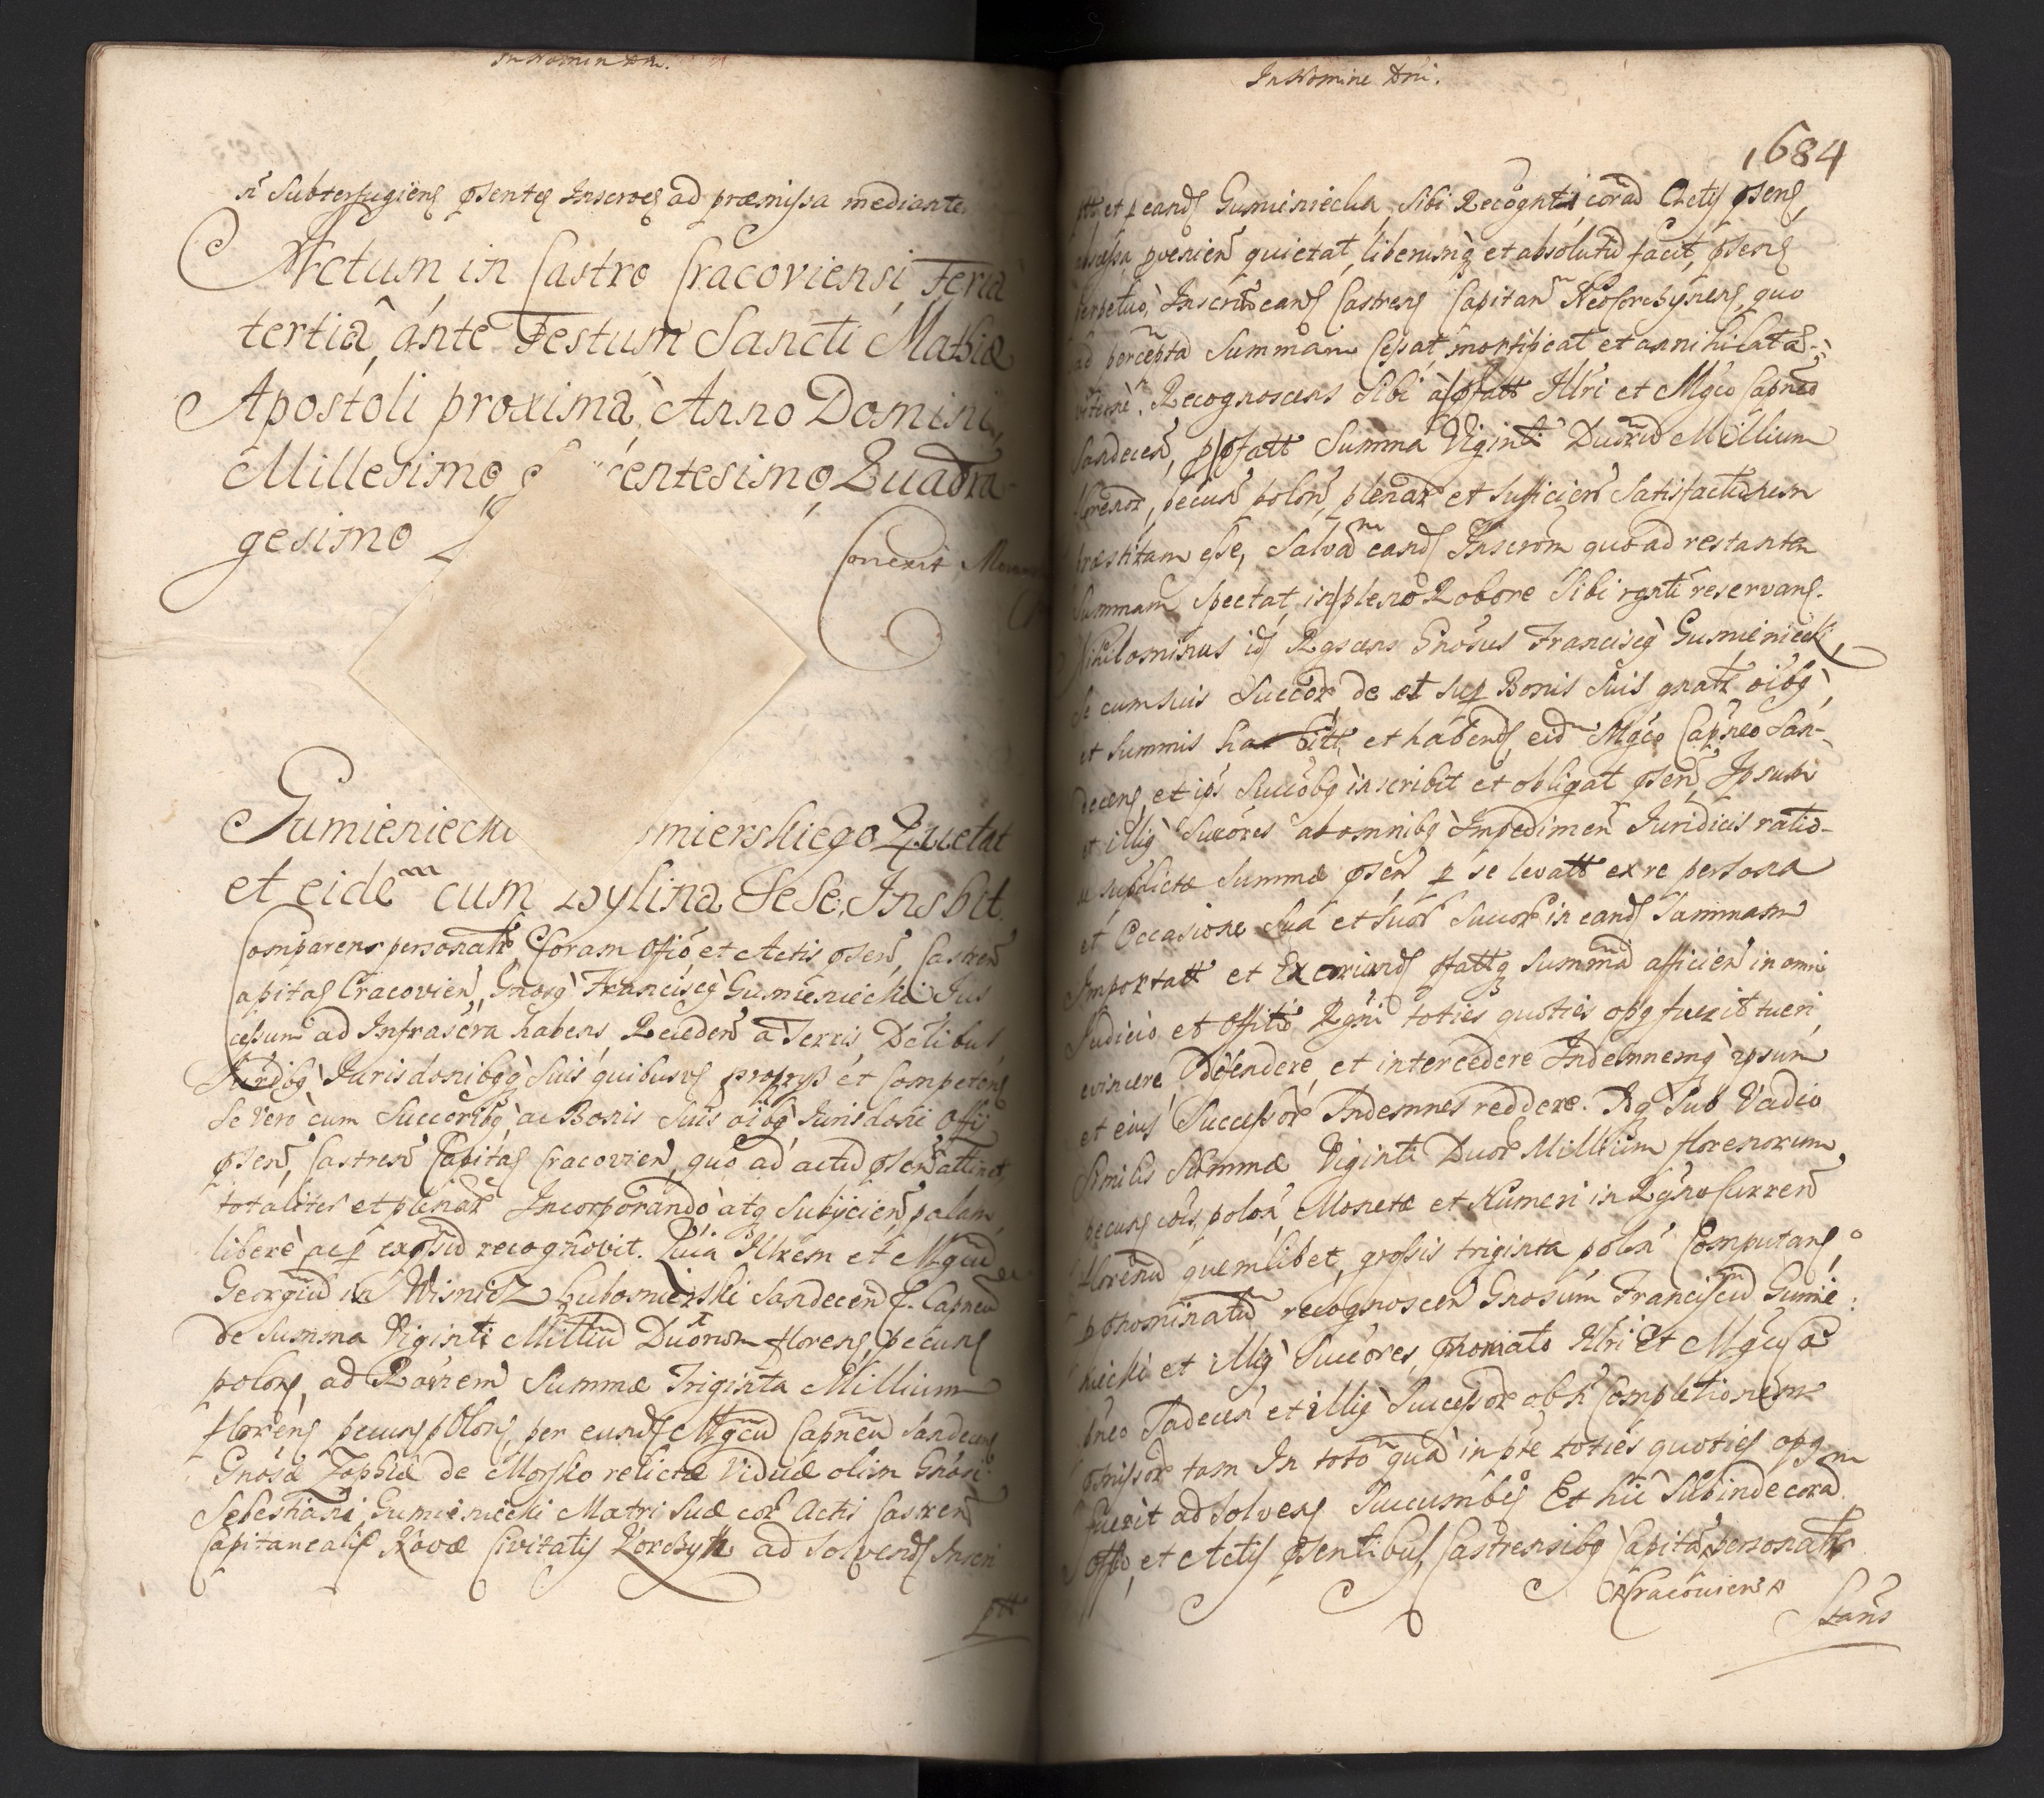 In Nomin Dni.
n Subterfugiens psentes Inscroes ad præmissa mediante.
Actum in Castro Cracoviensi Feria
tertia, ante Festum Sancti Mathiæ
Apostoli proxima, Anno Domini
Millesimo centesimo Quadra-
gesimo
Correxit
Gumieniecki mierskiego Quietat
et eidem cum Wylina Sese Insbit.
Comparens personalr Coram Offio et Actis psen, Castren
apitas Cracovien, Gnosq Franciscq Gumieniecki Jus
cessum ad Infrascra habens, Receden a Terris, Dctibus
Jurdibq Jurisdonibqq suis quibusvs proprys et Competens
Se vero cum Succoribq ac Bonis suis oibq Jurisdoni Offi
psen, Castren Capitas Cracovien, quo ad actu psen attinet,
totaliter et plenar Incorporando atq Subijcien, palam,
libere, ac p expssu recognovit. Quia Illrem et Mgcu
Georgiu in Wisnicz Lubomirski Sandecen C. Capneu
de Summa Viginti Milliu Duorum florens, pecuns
polons, ad Raonem Summæ Triginta Millium
florens pecuns polons, per eunds Mgcu Capneu Sandecens
Gnosæ Zophiæ de Morsko relictæ Viduæ olim Gnosi
Sebestiani Gumieniecki Matri suæ cor Actis Castren
Capitanealis Novæ Civitatis Korczyn ad solvends Inscri
ptt
In Nomine Dni.
1684
ptt et p eands Gumieniecka, Sibi Recognti corad Actis psens,
pvenien quietat, liberumq et absolutu facit, psens
perpetuo, Inscrm eands Castrens Capitan Neoforczynens, quo
ad percepta Summam Cessat, mortificat et annihilat
Recognoscens Sibi a pfatt Illri et Mgco Capneo
Sandecen, p pfatt Summa Viginti Duoru Millium
florenor, pecun polon, plenar et sufficien Satisfactionem
præstitam esse, Salva eands Inscrom quo ad restantem
Summam spectat, in pleno Robore Sibi rgnti reservans.
Nihilominus ids Rgscens Gnosus Franciscq Gumieniecki,
Se cum suis Succor, de et sup Bonis suis gnalr oibq,
et Summis habitt et habends, eidm Mgco Capneo San-
decens, et ips Succobq inscribit et obligat psen, Ipsum
et illiq Succores ab omnibq Impedimen Juridicis ratio-
e supdictæ Summæ psen p se levatt ex re persona
et Occasione sua et suor Succor in eands Summam
Importatt et Exoriunds pfattq Summa afficien in omni
Judicio et Offitio Rgni toties quoties opq fuerit tueri,
evincere, defendere, et intercedere Indemnemq ipsum
et eius Successor Indemnes reddere. Aq Sub Vadio
Similis Summæ Viginti Duor Millium florenorum,
pecuns cois, polon, Monetæ et Numeri in Rgno Curren
florenu quemlibet, grossis triginta polon Computans,
p pnominatu recognoscen Gnosum Franciscu Gumie:
niecki et illiq Succores, pnomiato Illri et Mgco Ca
pneo Sadecen et illiq Successor ob n Completionem
pmissor tam In toto qua in pte toties quoties opq
fuerit ad Solvens Succumbes Et hic Subinde cora
Offo, et Actis psentibus, Castrensibq Capitan personalr
Cracoviens
Stans